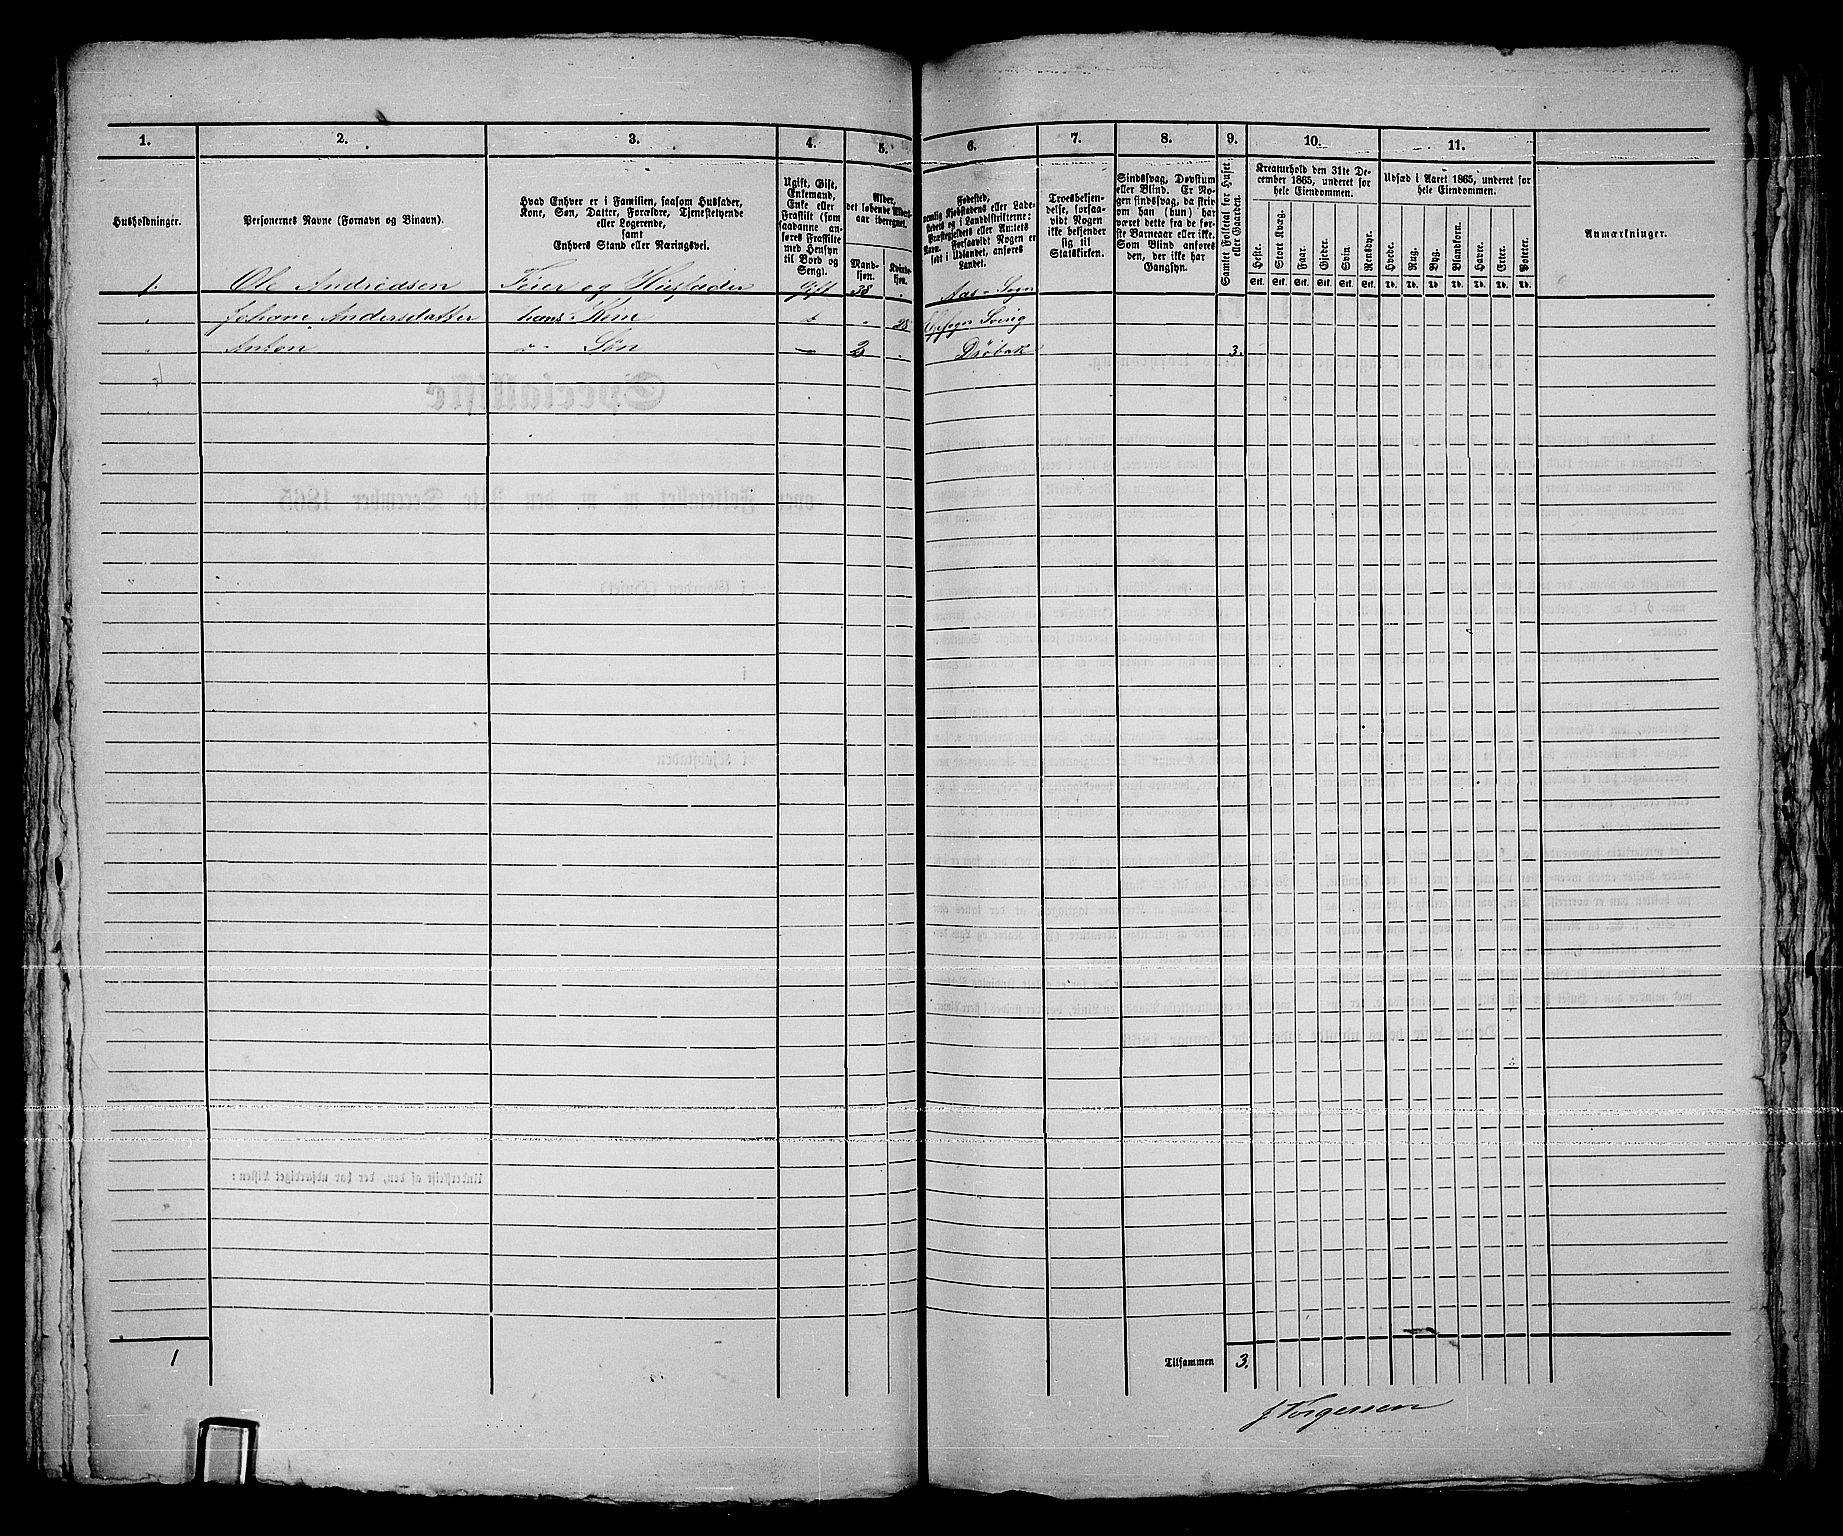 1. 2. 3. 4. 5. 6. 7. 8. 9. 10. 11.
Husholdninger.
Personernes Navne (Fornavn og Binavn).
Hvad Enhver er i Familien, saasom Husfader,
Kone, Søn, Datter, Forældre, Tjenestetyende
eller Logerende,
samt
Enhvers Stand eller Næringsvei.
Ugift, Gift,
Enkemand,
Enke eller
Fraskilt (som
saadanne an-
føres Fraskilte
med Hensyn
til Bord og
Seng).
Alder,
det løbende Alders-
aar iberegnet.
Mand-
kjøn.
Kvinde-
kjøn.
Fødested,
nemlig Kjøbstadens eller Lade-
stedets og i Landdistrikterne:
Præstegjeldets eller Amtets
Navn. Forsaavidt Nogen er
født i Udlandet, anføres
Landet.
Troesbekjen-
delse, forsaa-
vidt Nogen
ikke bekjender
sig til
Statskirken.
Sindssvag, Døvstum
eller Blind. Er No-
gen sindssvag, da skriv
om han (hun) har
været dette fra de før-
ste Barneaar eller ikke.
Som Blind anføres
den, der ikke har
Gangsyn.
Samlet Folketal for Huset
eller Gaarden.
Kreaturhold den 31te De-
cember 1865, underet for
hele Eiendommen.
Heste. Stort Kvæg. Faar. Gjeder. Svin. Rensdyr.
Stk. Stk. Stk. Stk. Stk. Stk.
Udsæd i Aaret 1865, underet for
hele Eiendommen.
Hvede. Rug. Byg. Blandkorn. Havre. Erter. Poteter.
Td. Td. Td. Td. Td. Td. Td.
Anmærkninger.
1. Ole Andreasen Feier og Husfader Gift 38 . Aas-Sogn
" Johane Andersdatter hans Kone " " 28 Sverig
" Anton " Søn — 2 . Drøbak 3.
1
Tilsammen 3.
J Torgersen